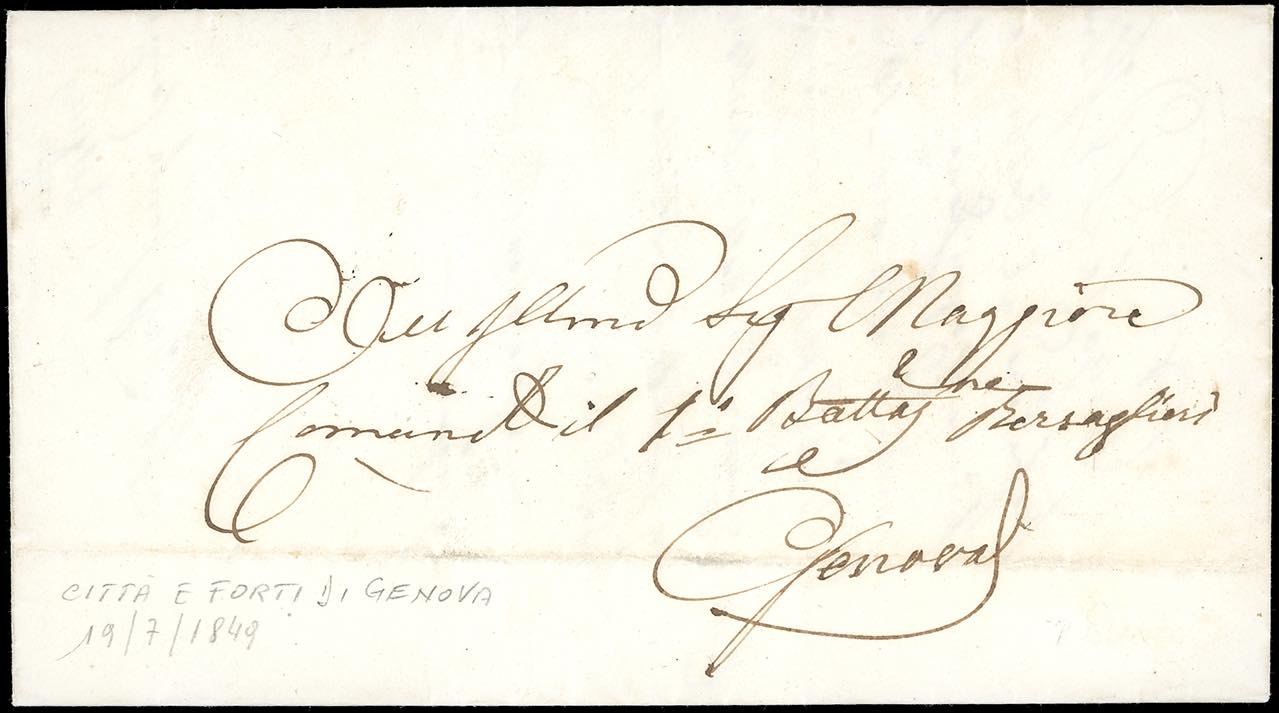 All Illmo Sig Maggiore
Comand il 1º Battagne Bersaglieri
Genova
CITTÀ E FORTI DI GENOVA
19/7/1849